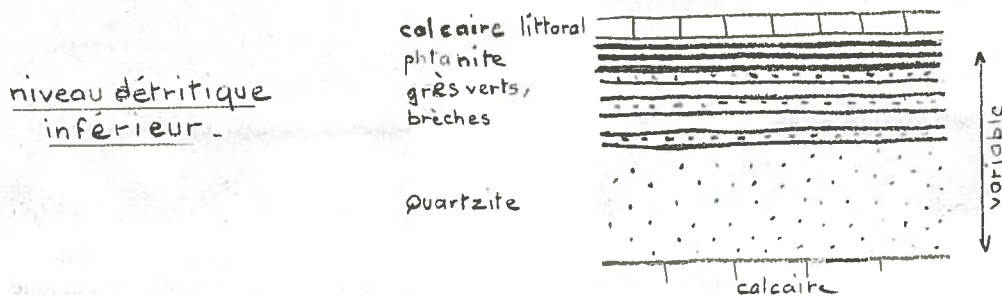 niveau détritique
inférieur.
calcaire littoral
phtanite
grès verts,
brèches
Quartzite
calcaire
variable